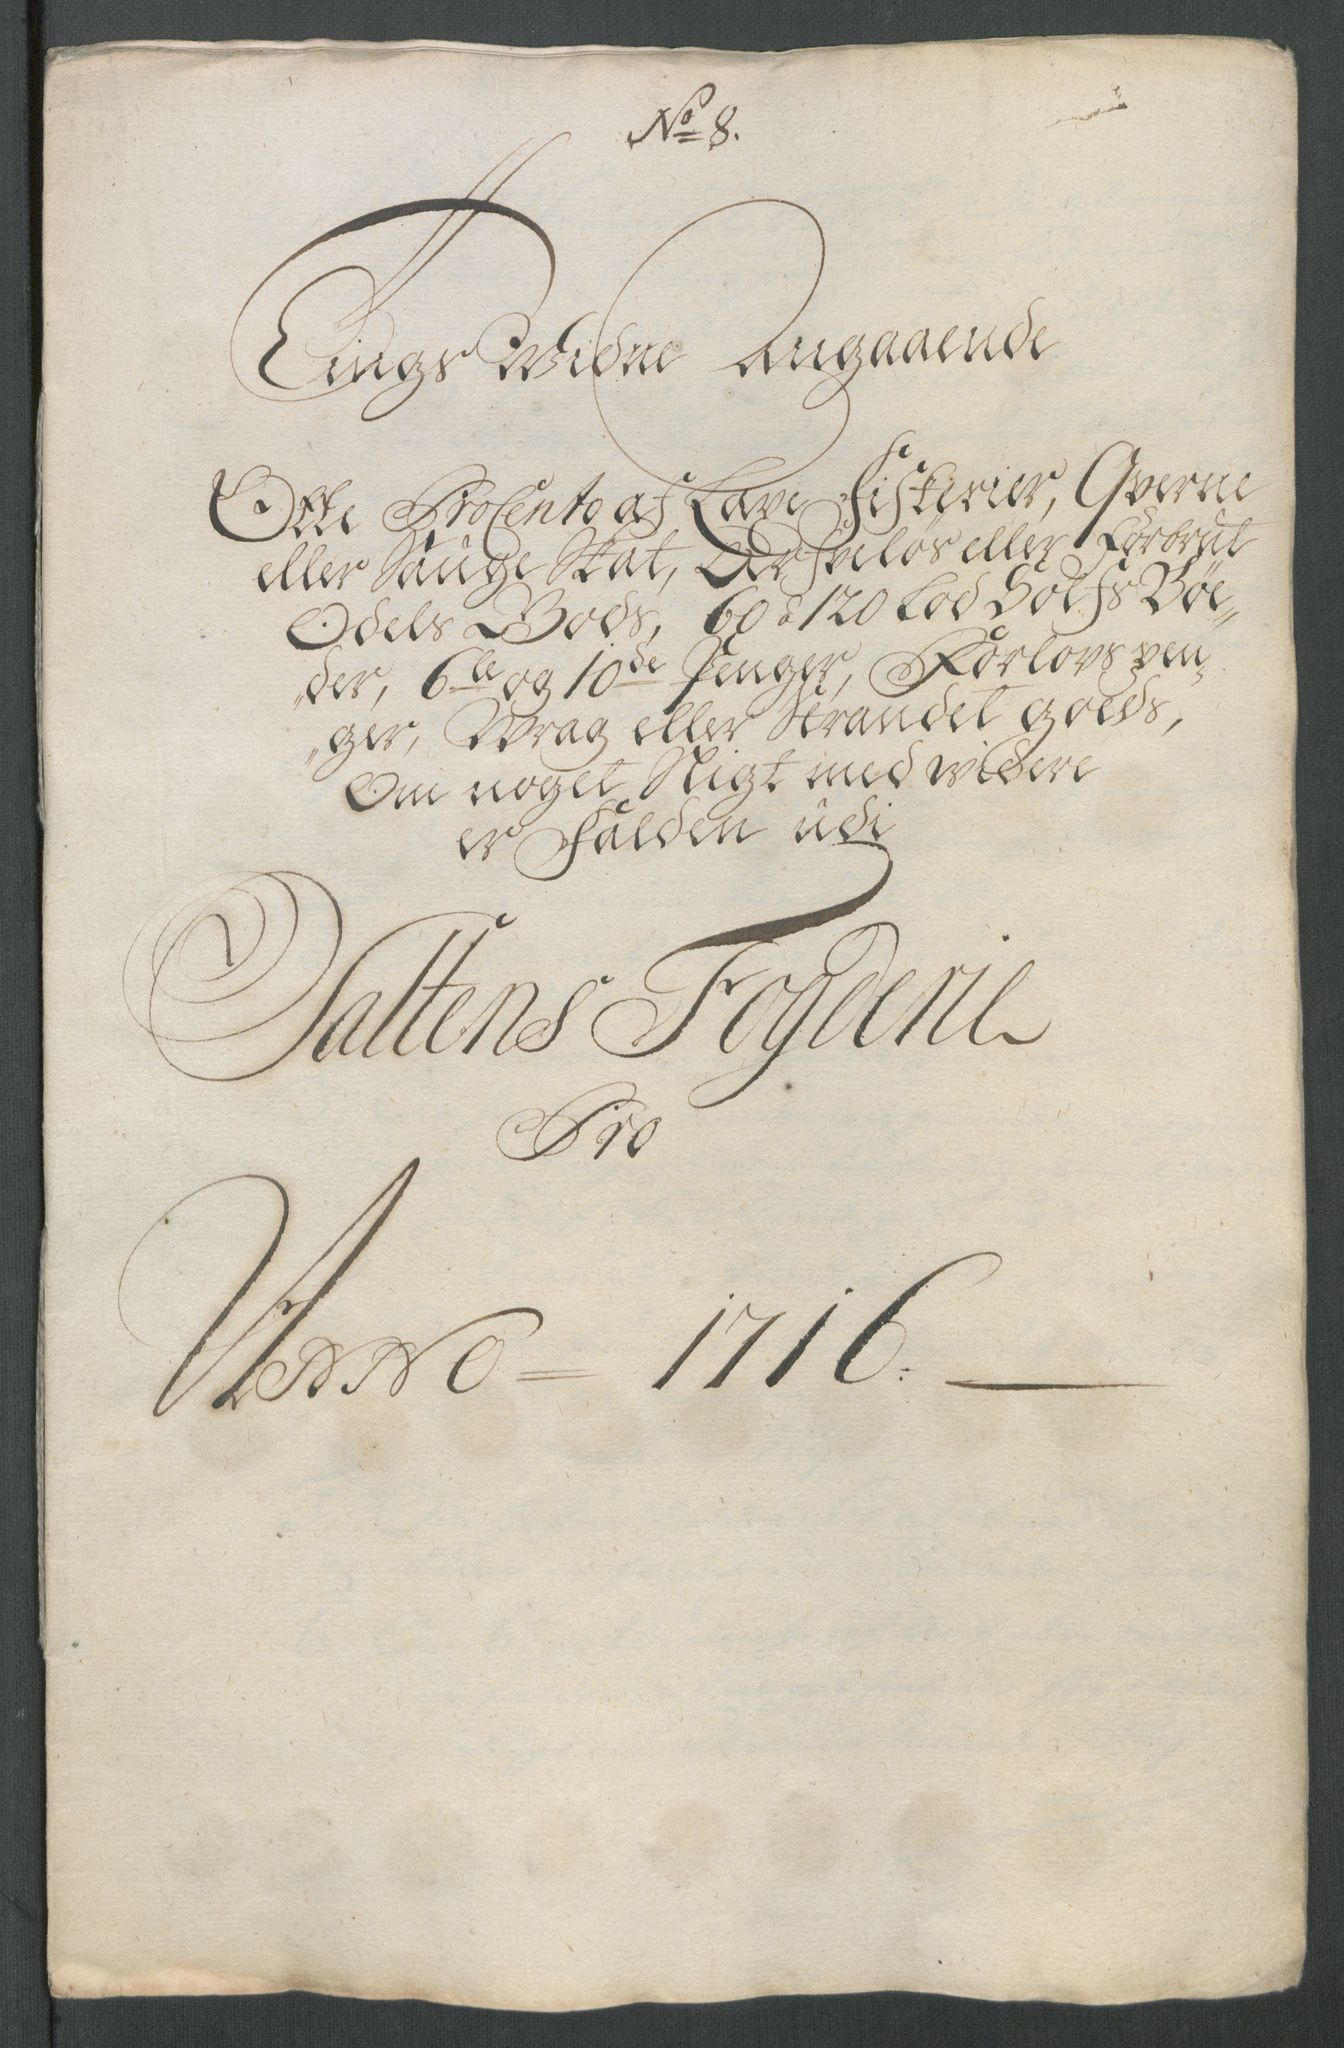 No 8.
Tings Widne Angaaende
Otte Procento af Lave Fiskerier, Qverne
eller Sauge Skat, Arfveløs eller Forbrut
Odels Gods, 60 à 120 Lod Sølfs Bøe-
der, 6te og 10de Penger, Forlovs pen-
ger, Wrag eller Strandet goeds,
Om noget Sligt med widere
er Falden udi
Saltens Fogderie
Pro
Anno = 1716.